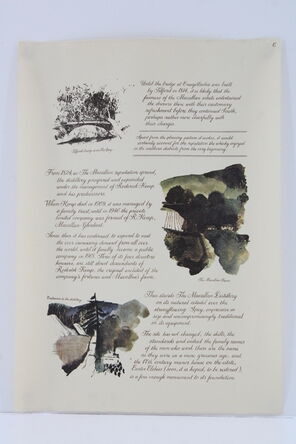 Until the bridge at Craigellachie was built
by Telford in 1814, it is likely that the
farmers of The Macallan while entertained
the drovers there with their customary
refreshment before they continued South,
perhaps rather more cheerfully with
their charges.
Apart from the pleasing picture it evokes, it would
certainly account for the reputation the whisky enjoyed
in the southern districts from the very beginning.
From 1824 as The Macallan reputation spread,
the distillery prospered and expanded
under the management of Roderick Kemp
and his predecessors.
When Kemp died in 1909, it was managed by
a family trust, until in 1946 the private
limited company was formed of R. Kemp,
Macallan-Glenlivet.
Since then it has continued to expand to meet
the ever increasing demand from all over
the world, until it finally became a public
company in 1968. Three of its four directors
however, are still direct descendants of
Roderick Kemp, the original architect of the
company's fortunes and Macallan's fame.
The Macallan
Thus stands The Macallan Distillery
on its natural estate over the
strengthening Spey, expansive in
size and uncompromisingly traditional
in its equipment.
The site has not changed; the skills, the
standards and indeed the family names
of the men who work there are the same
as they were in a more generous age, and
the 17th century manor house on the estate,
Easter Elchies (soon, it is hoped, to be restored),
is a fine enough monument to its foundation.